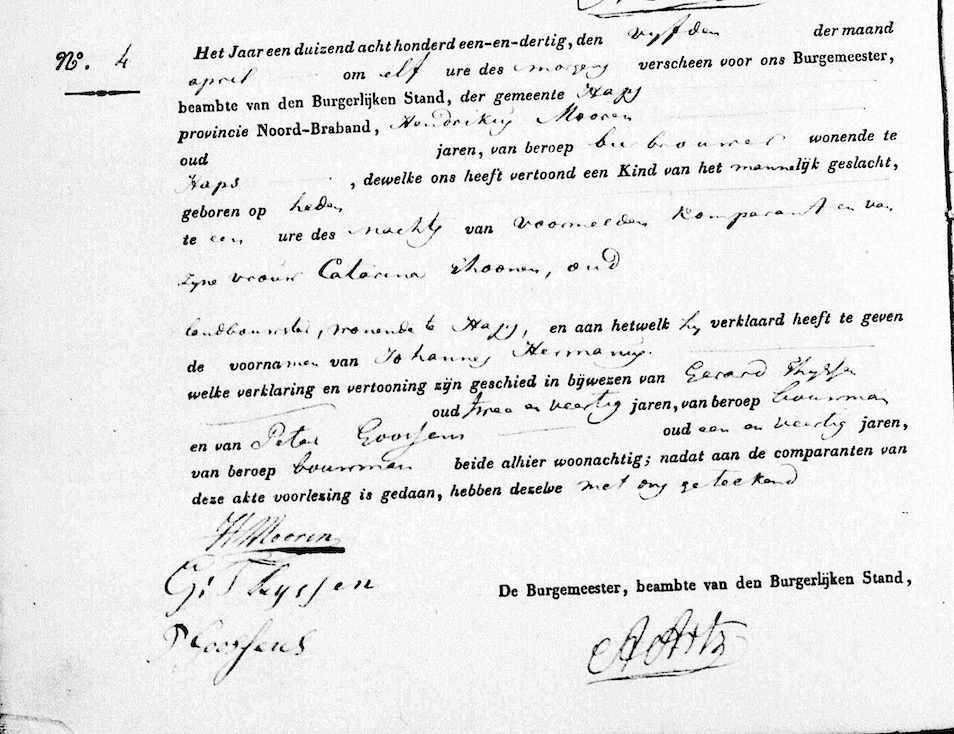 No. 4
Het Jaar een duizend acht honderd een-en-dertig, den vyfden der maand
april om elf ure des morgens verscheen voor ons Burgemeester,
beambte van den Burgerlijken Stand, der gemeente Haps
provincie Noord-Braband, Hendrikus Mooren
oud jaren, van beroep bierbrouwer wonende te
Haps , dewelke ons heeft vertoond een Kind van het mannelijk geslacht,
geboren op heden
te een ure des nachts van voormelden Komparant en van
zyne vrouw Catarina Thoonen, oud
landbouwster, wonende te Haps, en aan hetwelk hy verklaard heeft te geven
de voornamen van Johannes Hermanus.
welke verklaring en vertooning zijn geschied in bijwezen van Gerard Thyssen
oud twee en veertig jaren, van beroep bouwman
en van Peter Goossens oud een en veertig jaren,
van beroep bouwman beide alhier woonachtig; nadat aan de comparanten van
deze akte voorlezing is gedaan, hebben dezelve met ons geteekend
H Mooren
G: Thyssen
De Burgemeester, beambte van den Burgerlijken Stand,
P Goossens
A Artz